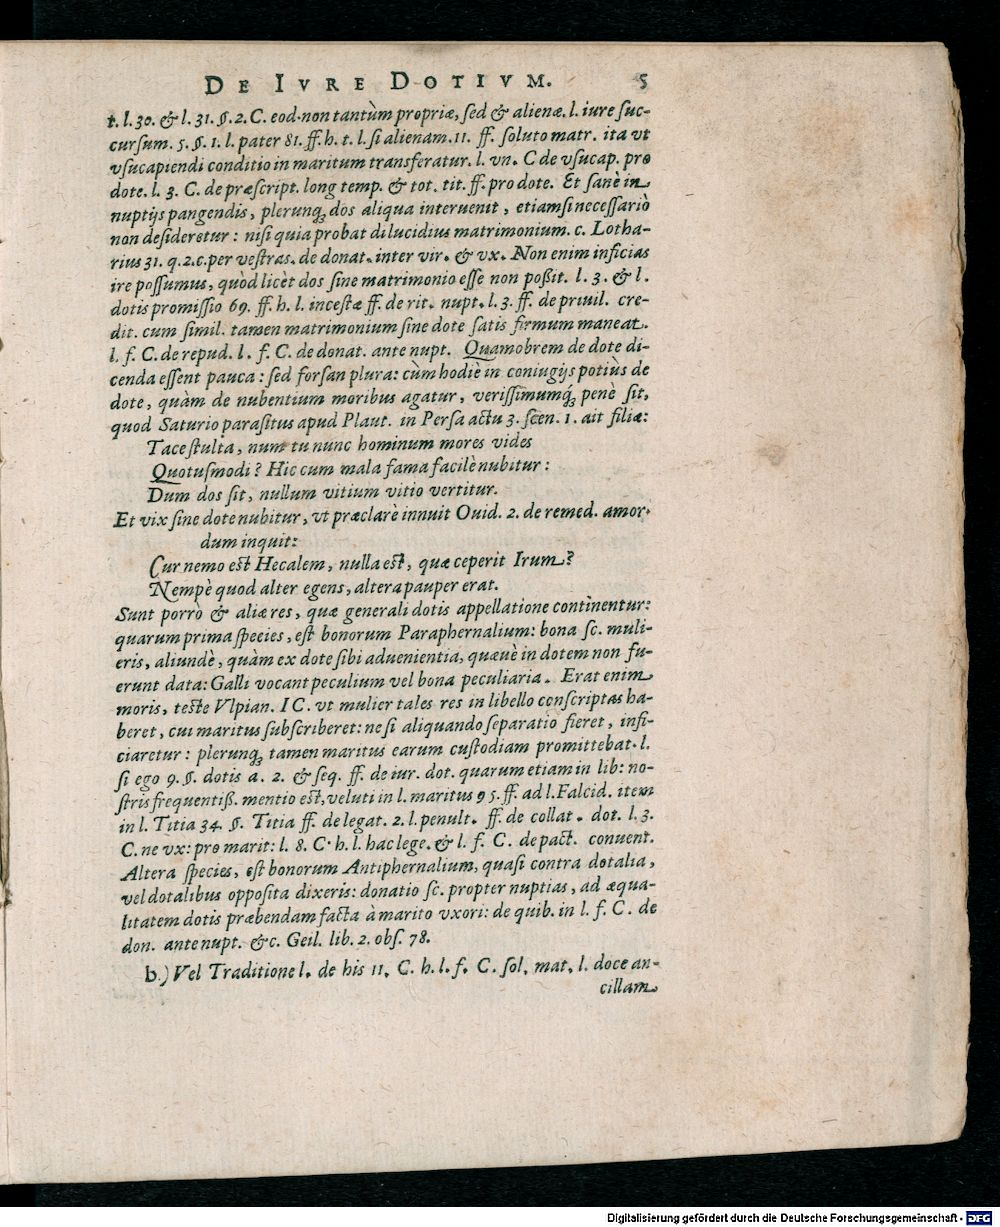 DE IVRE DOTIVM. 5
t. l. 30. & l. 31. §. 2. C. eod. non tantùm propriæ, sed & alienæ. l. iure suc-
cursum. 5. §. 1. l. pater 81. ff. h. t. l. si alienam. 11. ff. soluto matr. ita vt
vsucapiendi conditio in maritum transferatur. l. vn. C de vsucap. pro
dote. l. 3. C. de præscript. long temp. & tot. tit. ff. pro dote. Et sanè in
nuptijs pangendis, plerunq; dos aliqua interuenit, etiamsi necessariò
non desideretur: nisi quia probat dilucidius matrimonium. c. Lotha-
rius 31. q. 2. c. per vestras. de donat. inter vir. & vx. Non enim inficias
ire possumus, quòd licèt dos sine matrimonio esse non poßit. l. 3. & l.
dotis promissio 69. ff. h. l. incestæ ff. de rit. nupt. l. 3. ff. de priuil. cre-
dit. cum simil. tamen matrimonium sine dote satis firmum maneat.
l. f. C. de repud. l. f. C. de donat. ante nupt. Quamobrem de dote di-
cenda essent pauca: sed forsan plura: cùm hodiè in coniugijs potiùs de
dote, quàm de nubentium moribus agatur, verissimumq́; penè sit,
quod Saturio parasitus apud Plaut. in Persa actu 3. scen. 1. ait filiæ:
Tace stulta, num tu nunc hominum mores vides
Quotusmodi? Hic cum mala fama facilè nubitur:
Dum dos sit, nullum vitium vitio vertitur.
Et vix sine dote nubitur, vt præclarè innuit Ouid. 2. de remed. amor.
dum inquit:
Cur nemo est Hecalem, nulla est, quæ ceperit Irum?
Nempè quod alter egens, altera pauper erat.
Sunt porrò & aliæ res, quæ generali dotis appellatione continentur:
quarum prima species, est bonorum Paraphernalium: bona sc. muli-
eris, aliundè, quàm ex dote sibi aduenientia, quæuè in dotem non fu-
erunt data: Galli vocant peculium vel bona peculiaria. Erat enim
moris, teste Vlpian. IC. vt mulier tales res in libello conscriptas ha-
beret, cui maritus subscriberet: ne si aliquando separatio fieret, infi-
ciaretur: plerunq; tamen maritus earum custodiam promittebat. l.
si ego 9. §. dotis a. 2. & seq. ff. de iur. dot. quarum etiam in lib: no-
stris frequentiß. mentio est, veluti in l. maritus 95. ff. ad l. Falcid. item
in l. Titia 34. §. Titia ff. de legat. 2. l. penult. ff. de collat. dot. l. 3.
C. ne vx: pro marit: l. 8. C. h. l. hac lege. & l. f. C. de pact. conuent.
Altera species, est bonorum Antiphernalium, quasi contra dotalia,
vel dotalibus opposita dixeris: donatio sc. propter nuptias, ad æqua-
litatem dotis præbendam facta à marito vxori: de quib. in l. f. C. de
don. ante nupt. &c. Geil. lib. 2. obs. 78.
b.) Vel Traditione l. de his 11. C. h. l. f. C. sol. mat. l. doce an-
cillam
Digitalisierung gefördert durch die Deutsche Forschungsgemeinschaft · DFG